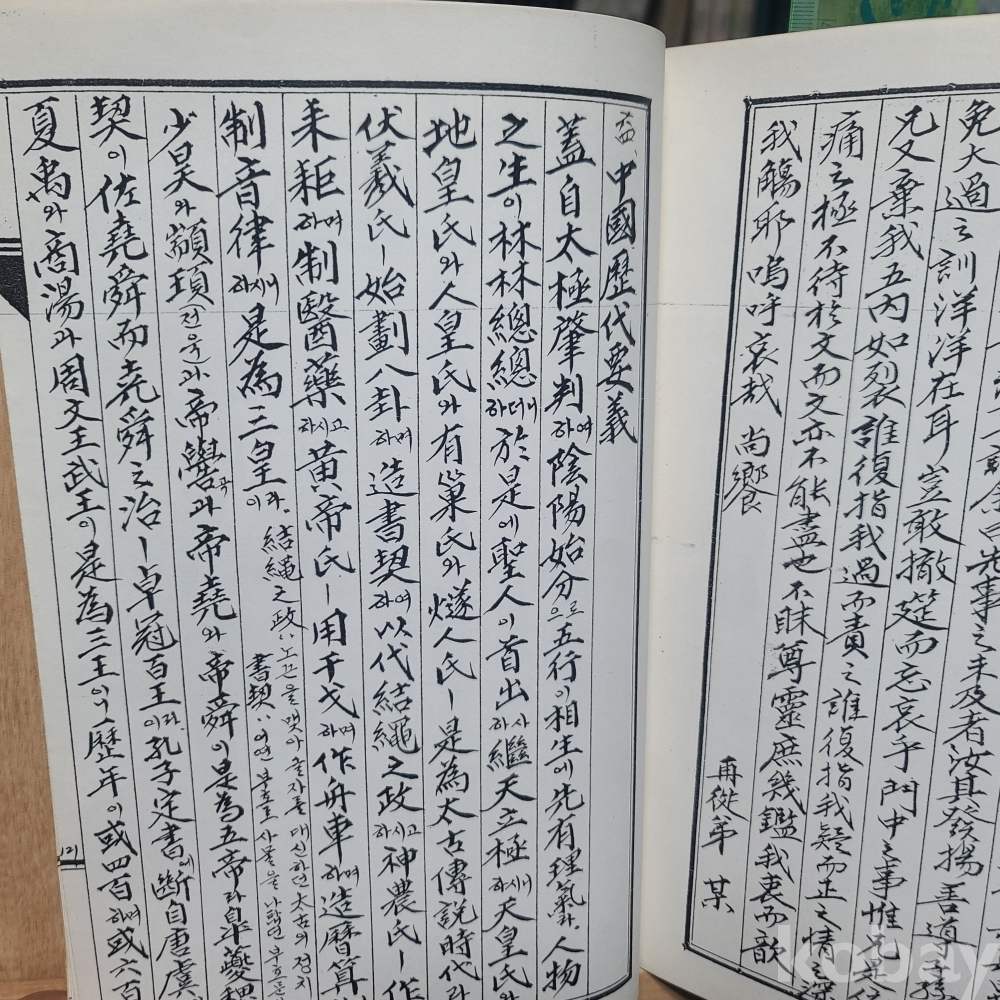 念曰先事之未及者汝其發揚善道
免大過之訓洋洋在耳豈敢撤筵而忘哀乎門中之事惟兄是
兄又棄我五内如裂誰復指我過而責之誰復指我疑而正之情之深
痛之極不待於文而文亦不能盡也不昧尊靈庶幾鑑我衷而歆
我觴耶嗚呼哀哉 尚饗
再從弟 某
益 中國歷代要義
蓋自太極肇判하여陰陽始分으로五行이相生에先有理氣하고人物
之生이林林總總하더니於是에聖人이首出하사繼天立極하시니天皇氏와
地皇氏와人皇氏와有巢氏와燧人氏ㅣ是為太古傳說時代라
伏羲氏ㅣ始劃八卦하며造書契하여以代結繩之政하시고神農氏ㅣ作
耒耜하며制醫藥하시고黃帝氏ㅣ用干戈하며作舟車하며造曆算
制音律하시니是為三皇이라
結繩之政은 노끈을 맺아 글자를 대신하던 太古의 정치
書契는 어떤 부호로 사물을 나타낸 부호
少昊와顓頊전욱과帝嚳곡과帝堯와帝舜이是為五帝라皐夔稷
契이佐堯舜而堯舜之治ㅣ卓冠百王이라孔子定書에斷自唐虞
夏禹와商湯과周文王武王이是為三王이니歷年이或四百하며或六百
121
kobay